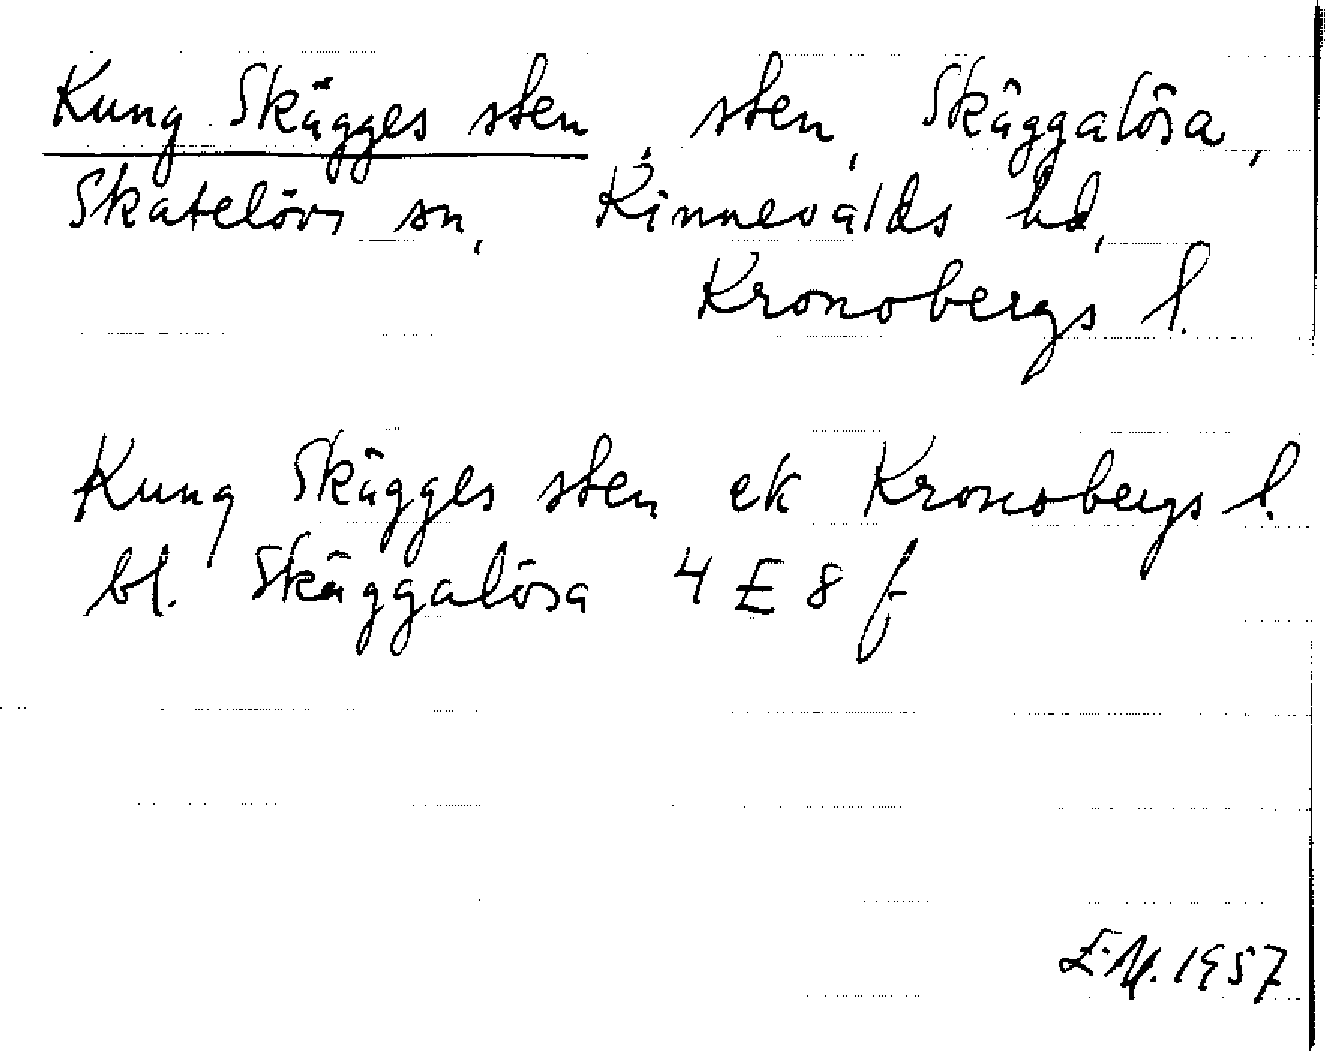 Kung Skägges sten, sten, Skäggalösa,
Skatelövs sn, Kinnevalds hd,
Kronobergs l.
Kung Skägges sten ek Kronobergs l.
bl. Skäggalösa 4 E 8 f
E.M. 1957